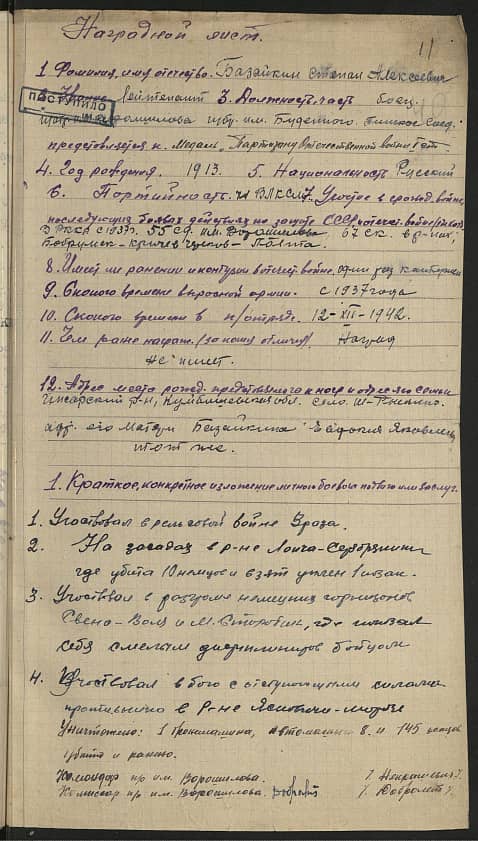 Наградной лист.
11
1. Фамилия, имя, отчество. Базайкин Степан Алексеевич
ПОСТУПИЛО
2. Звание лейтенант 3. Должность, часть боец
Ворошилова им. Буденного. Пинское соед.
представляется к. Медаль "Партизану Отечественной войны I ст.
4. Год рождения. 1913. 5. Национальность Русский
6. Партийность. чл ВЛКСМ 7. Участие в гражд. войне,
последующих боевых действиях по защите СССР
в РККА с 1937. 55 СД им. Ворошилова 67 СК в р-нах,
8. Имеет ли ранения и контузии в отечест. войне. один раз контужен
9. С какого времени в красной армии. с 1937 года
10. С какого времени в п/отряде. 12-XII-1942.
11. Чем ранее награж. (за какие отличия) Наград
не имеет.
12. Адрес места рожд. представляемого к награде и адрес его семьи
р-н, Куйбышевская обл. село
адр. его матери Базайкина Евдокия Яковлевна
тот же.
1. Краткое, конкретное изложение личного боевого подвига или заслуг.
1. Участвовал в рельсовой войне 3 раза.
2. На засадах в р-не
где убито 10 немцев и взят в плен 1 казак.
3. Участвовал в разгроме немецких гарнизонов
Воля и М. где показал
себя смелым бойцом
4. Участвовал в бою с отступающими силами
противника в р-не
Уничтожено: 1 автомашин 8 и 145 немцев
убито и ранено.
Командир п/о им. Ворошилова.
Комиссар п/о им. Ворошилова.